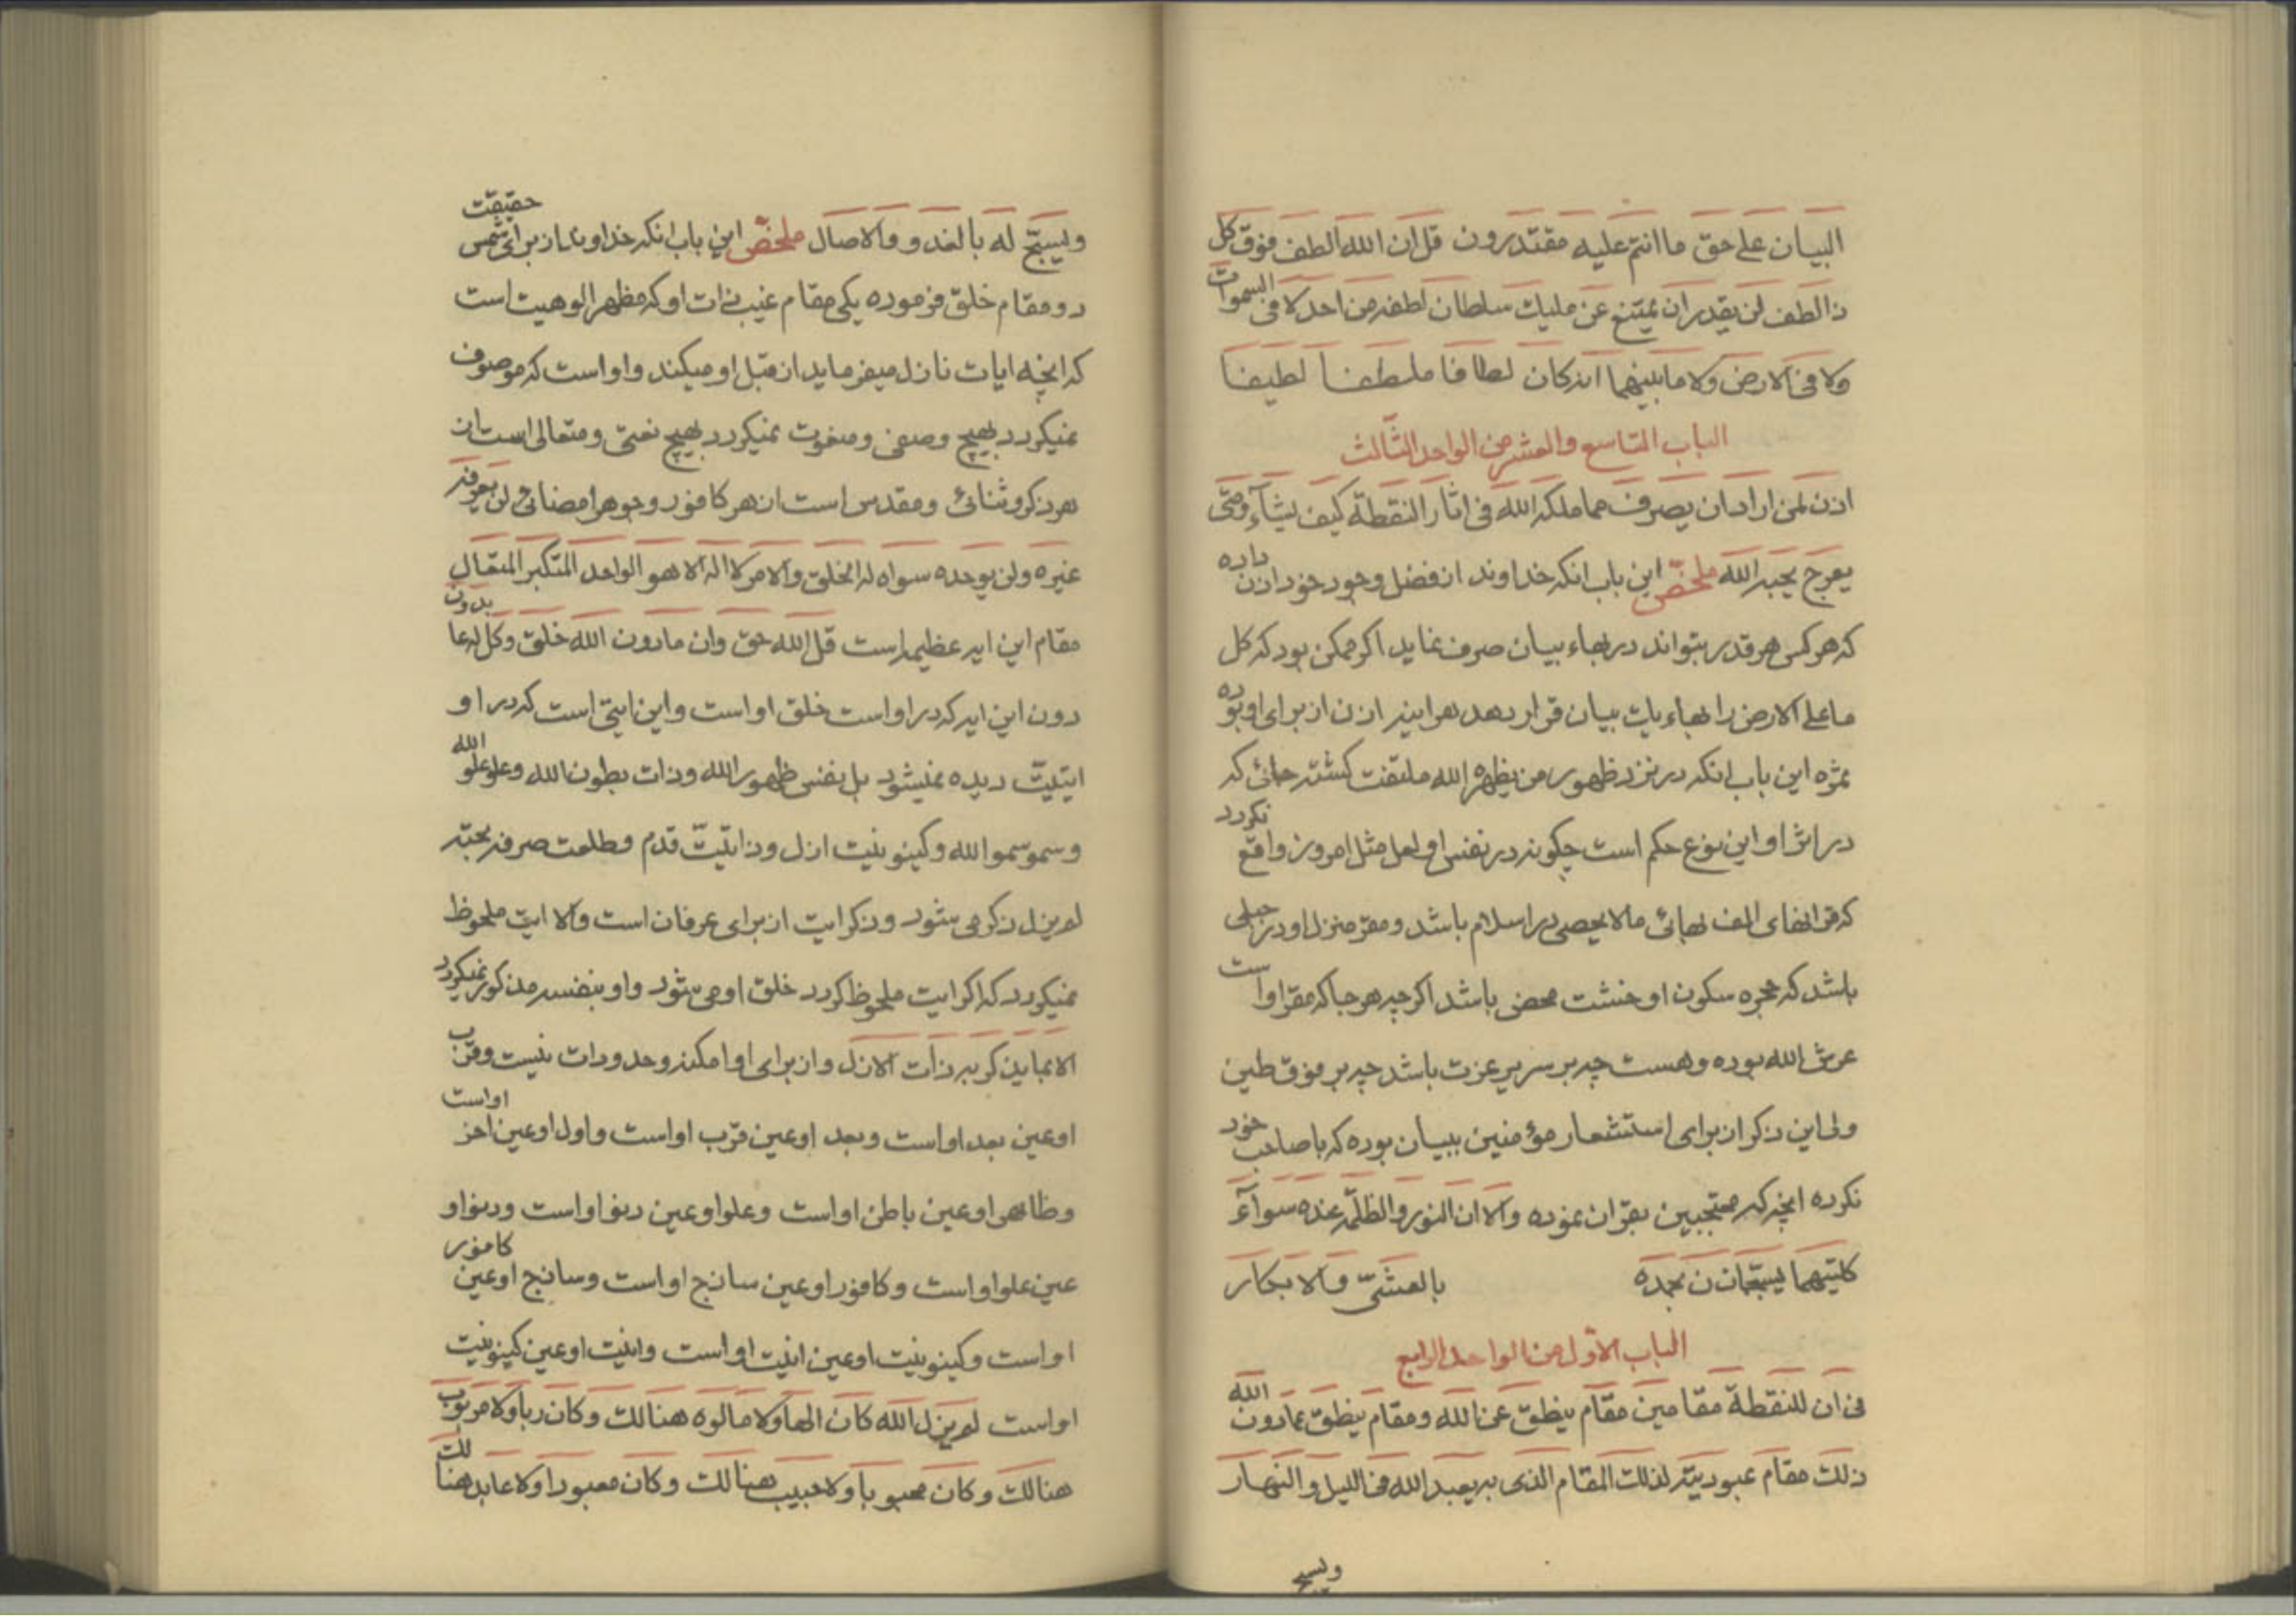 البیان علی حق ما انتم علیه مقتدرون قل ان الله الطف فوق کل
ذا الطف لن یقدر ان یمتنع عن ملیک سلطان لطفه من احد لا فی السموات
ولا فی الارض ولا ما بینهما انه کان لطافا ملطفا لطیفا
الباب التاسع والعشر من الواحد الثالث
اذن لمن اراد ان یصرف مما ملکه الله فی اثار النقطة کیف یشآء ومتی
یعرج بحبه الله ملخص این باب انکه خداوند از فضل وجود خود اذن داده
که هر کس هر قدر بتواند در بهاء بیان صرف نماید اکر ممکن بود که کل
ما علی الارض را بهاء یک بیان قرار دهد هراینه اذن از برای او بوده
ثمره این باب انکه در نزد ظهور من یظهره الله ملتفت کشته جائی که
در اثر او این نوع حکم است چکونه در نفس او لعل مثل امروز واقع نکردد
که قرانهای الف بهائی ما لا یحصی در اسلام باشد ومقر منزل او در جبلی
باشد که حجره سکون او خشت محض باشد اکرچه هر جا که مقر او است
عرش الله بوده وهست چه بر سریر عزت باشد چه بر فوق طین
ولی این ذکر از برای استشعار مؤمنین ببیان بوده که با صاحب خود
نکرده انچه که محتجبین بقران نموده والا ان النور والظلمة عنده سوآء
کلتیهما یسبحان بحمده بالعشی والابکار
الباب الاول من الواحد الرابع
فی ان للنقطة مقامین مقام ینطق عن الله ومقام ینطق عما دون الله
ذلک مقام عبودیته لذلک المقام الذی به یعبد الله فی اللیل والنهار
ویسبح
ویسبح له بالغدو والاصال ملخص این باب انکه خداوند از برای شمس حقیقت
دو مقام خلق فرموده یکی مقام غیب ذات او که مظهر الوهیت است
که انچه ایات نازل میفرماید از قبل او میکند واو است که موصوف
نمیکردد بهیچ وصفی ومنعوت نمیکردد بهیچ نعتی ومتعالی است از
هر ذکر وثنائی ومقدس است از هر کافور وجوهر امضائی لن یعرفه
غیره ولن یوحده سواه له الخلق والامر لا اله الا هو الواحد المتکبر المتعال
مقام این ایه عظیمه است قل الله حق وان ما دون الله خلق وکل له عابدون
دون این ایه که در او است خلق او است واین ایتی است که در او
ایتیت دیده نمیشود بل بنفس ظهور الله وذات بطون الله وعلو علو الله
وسمو سمو الله وکینونیت ازل وذاتیت قدم وطلعت صرفه بحته
لم یزل ذکر می شود وذکر ایت از برای عرفان است والا ایت ملحوظ
نمیکردد که اکر ایت ملحوظ کردد خلق او می شود واو بنفسه مذکور نمیکردد
الا بما یذکر به ذات الازل واز برای او امکنه وحدودات نیست وقرب
او عین بعد او است وبعد او عین قرب او است واول او عین اخر او است
وظاهر او عین باطن او است وعلو او عین دنو او است ودنو او
عین علو او است وکافور او عین ساذج او است وساذج او عین کافور
او است وکینونیت او عین انیت او است وانیت او عین کینونیت
او است لم یزل الله کان الها ولا مالوه هنالک وکان ربا ولا مربوب
هنالک وکان محبوبا ولا حبیب هنالک وکان معبودا ولا عابد هنالک